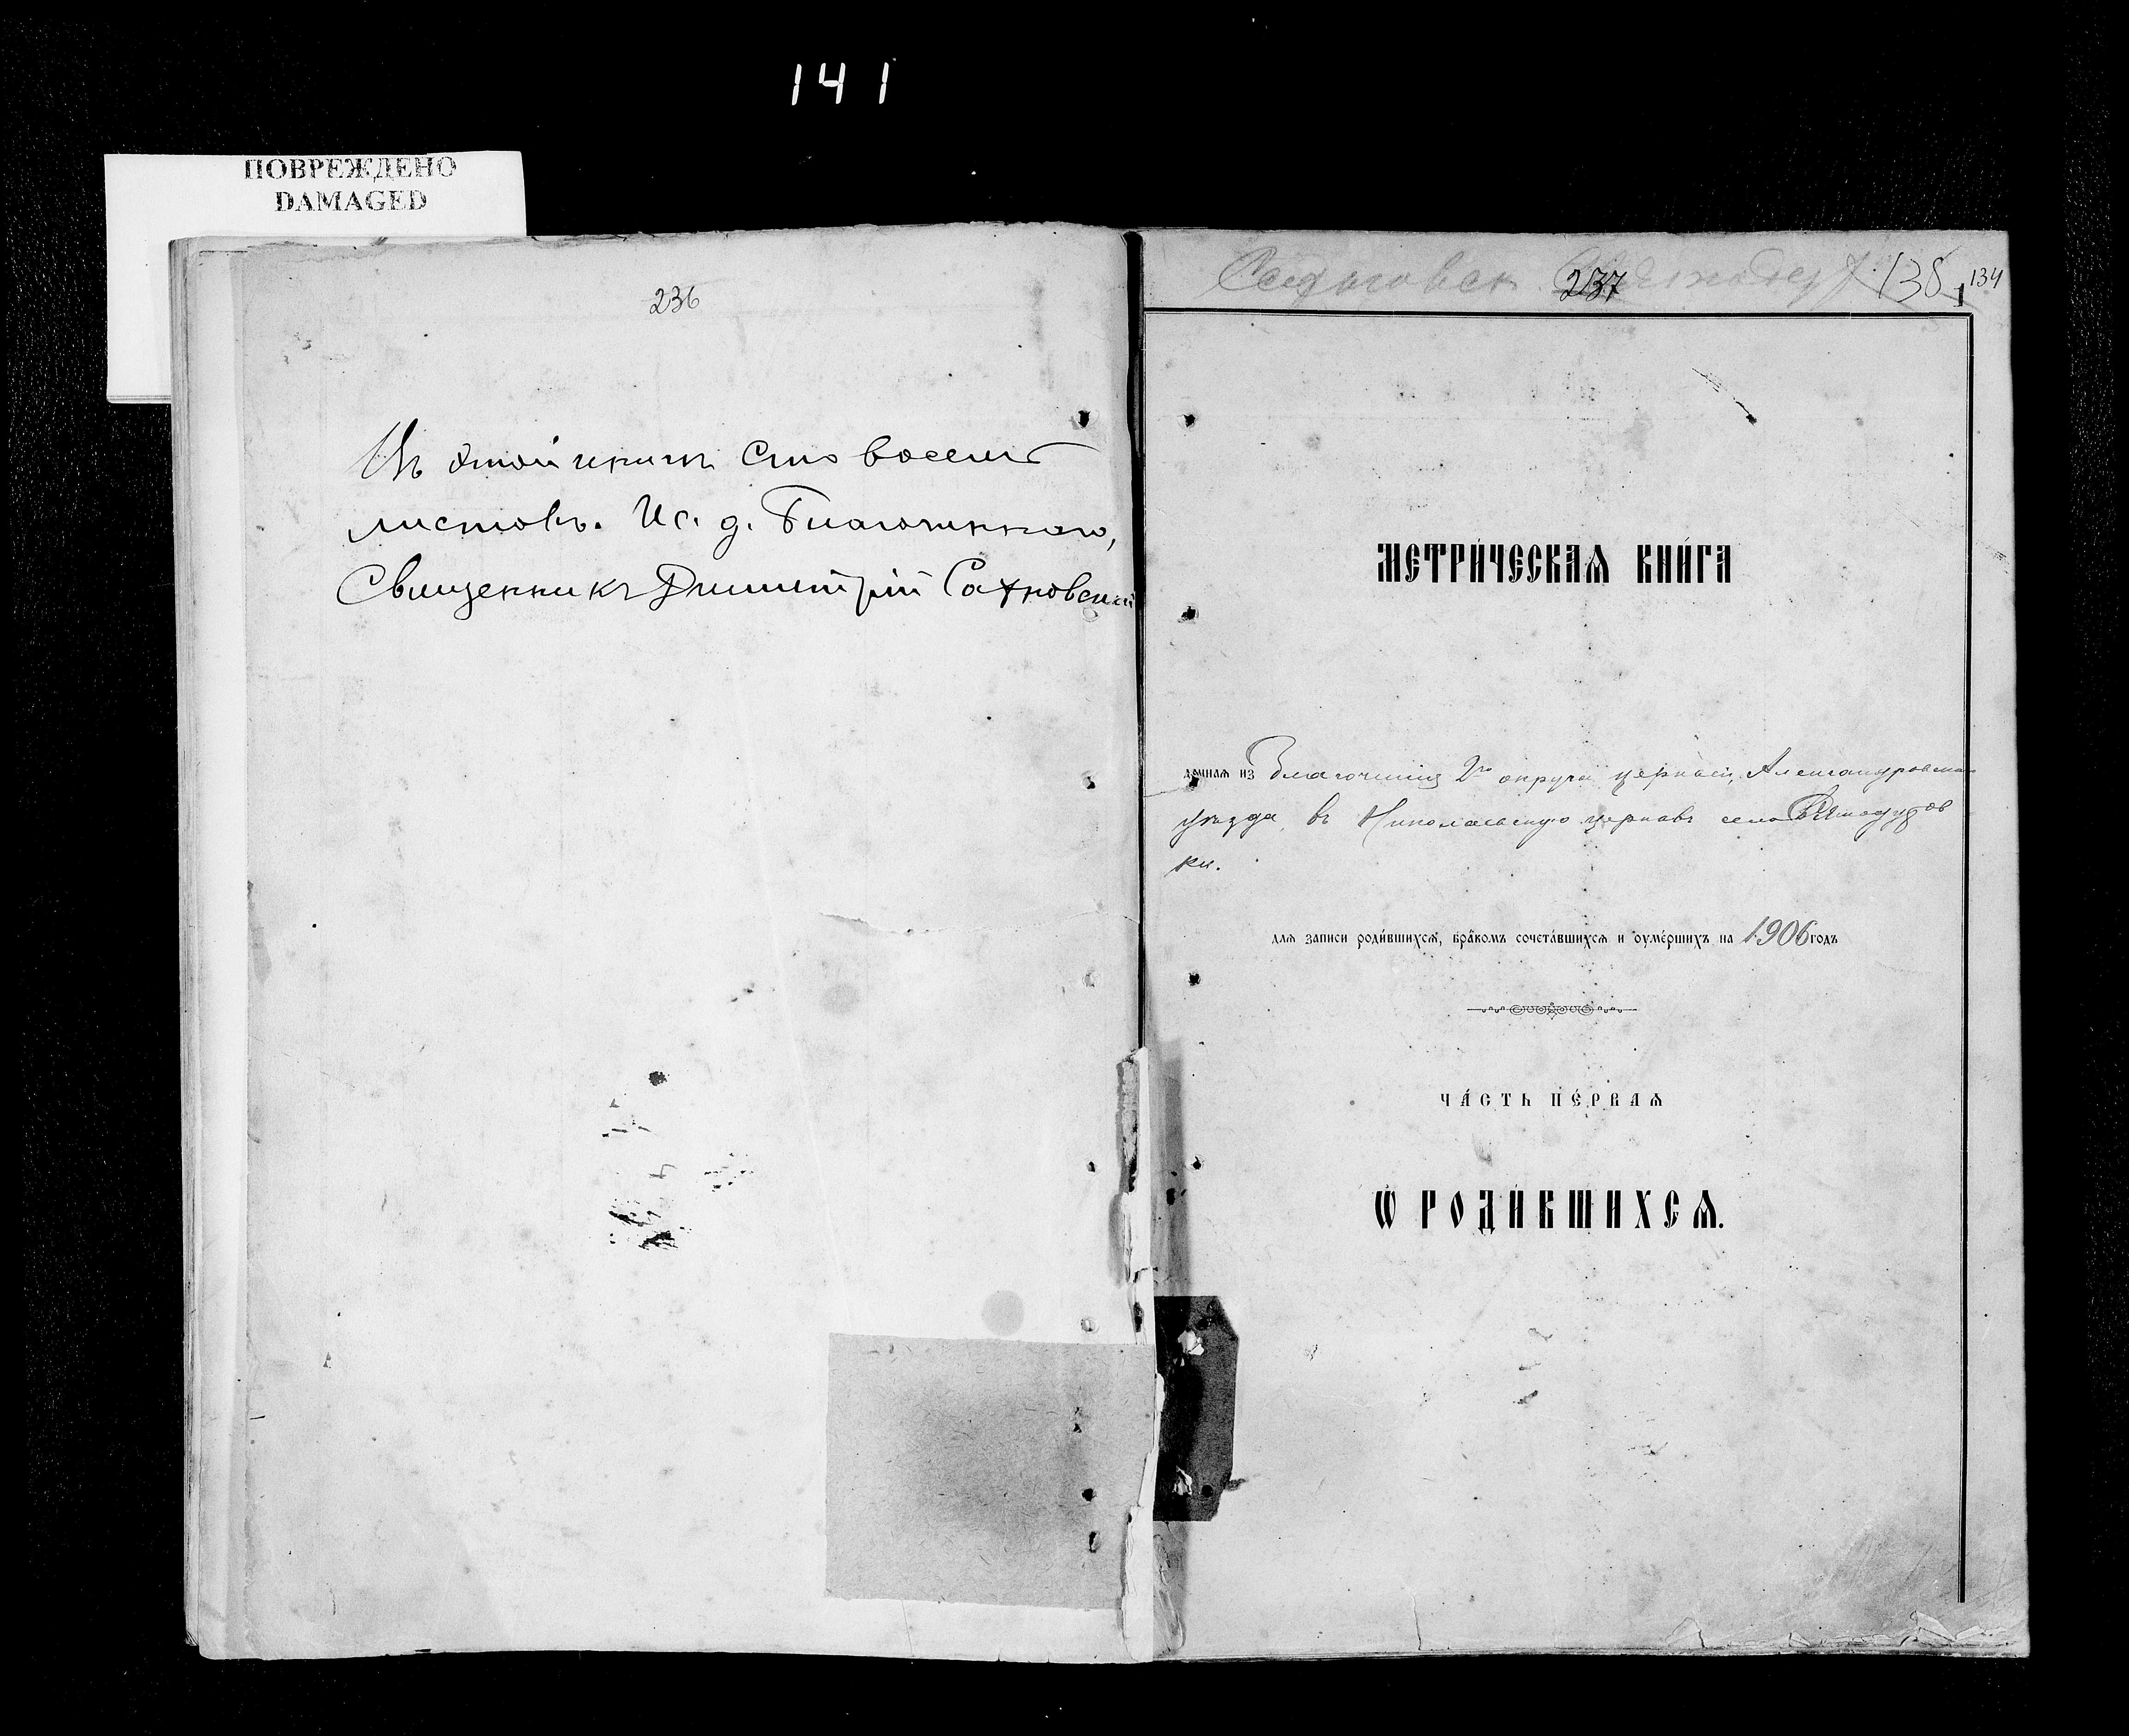 141
ПОВРЕЖДЕНО
DAMAGED
236
Въ этой книгѣ сто восемь
листовъ. Ис. д. Благочиннаго,
Священникъ Димитрій Сахновскій
237 138 1 134
МЕТРИ́ЧЕСКАѦ КНИ́ГА
данная из Благочинія 2го округа церквей, Александровска
уѣзда, въ Николаевскую церковь села
ки.
для записи роди́вшихсѧ, бра́комъ сочета́вшихсѧ и оуме́ршихъ на 1906 годъ
ЧА́СТЬ ПЕ́РВАѦ
Ѡ РОДИ́ВШИХСѦ.